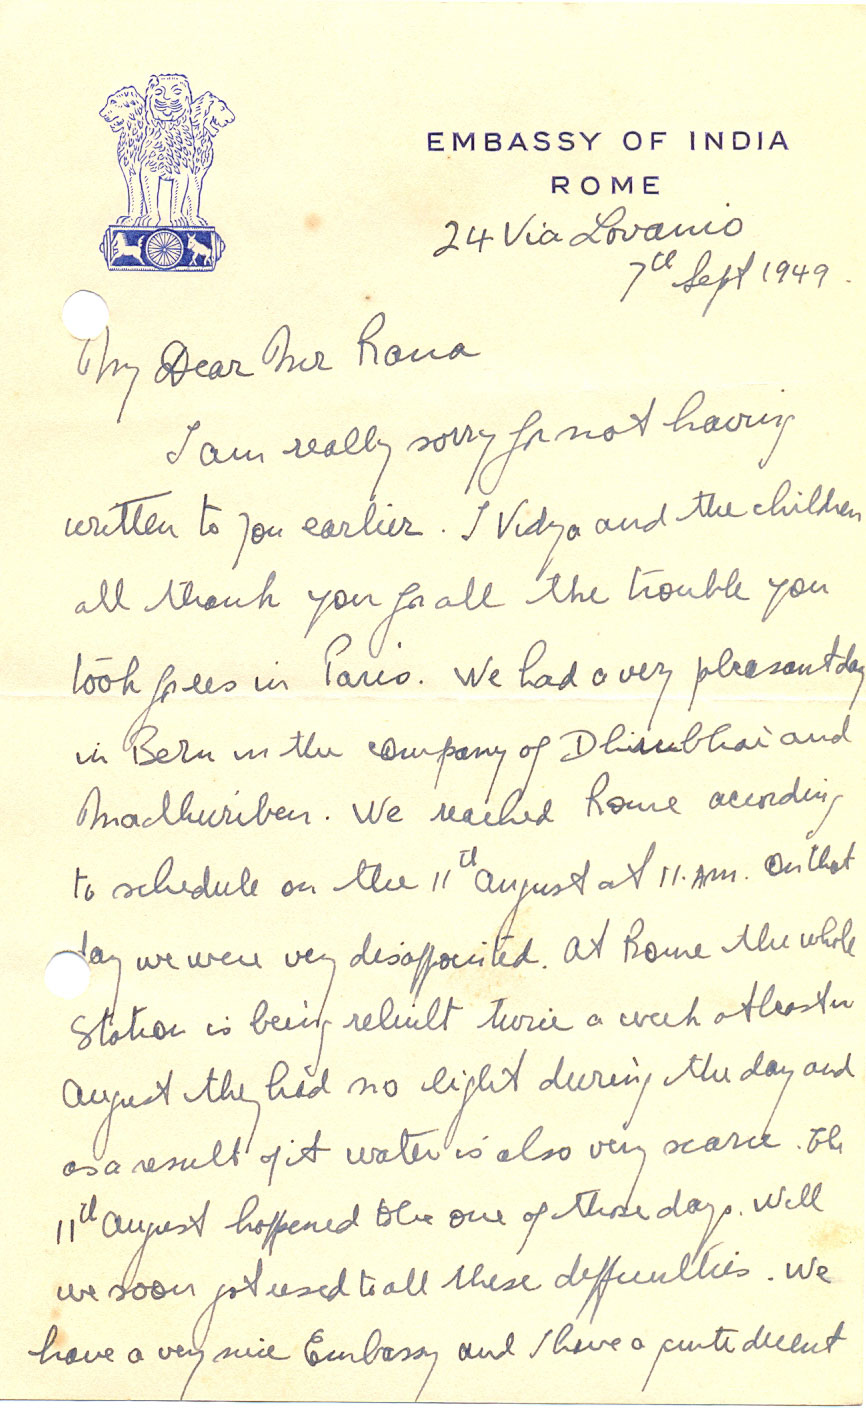 EMBASSY OF INDIA
ROME
24 Via Lovanio
7th Sept 1949.
My Dear Mr Rana
I am really sorry for not having
written to you earlier. I Vidya and the children
all thank you for all the trouble you
took for us in Paris. We had a very pleasant day
in Bern in the company of Dhirubhai and
Madhuriben. We reached Rome according
to schedule on the 11th August at 11. AM. On that
day we were very disappointed. At Rome the whole
Station is being rebuilt twice a week atleast in
August they had no light during the day and
as a result of it water is also very scarce. The
11th August happened to be one of those days. Well
we soon got used to all these difficulties. We
have a very nice Embassy and I have a quite decent